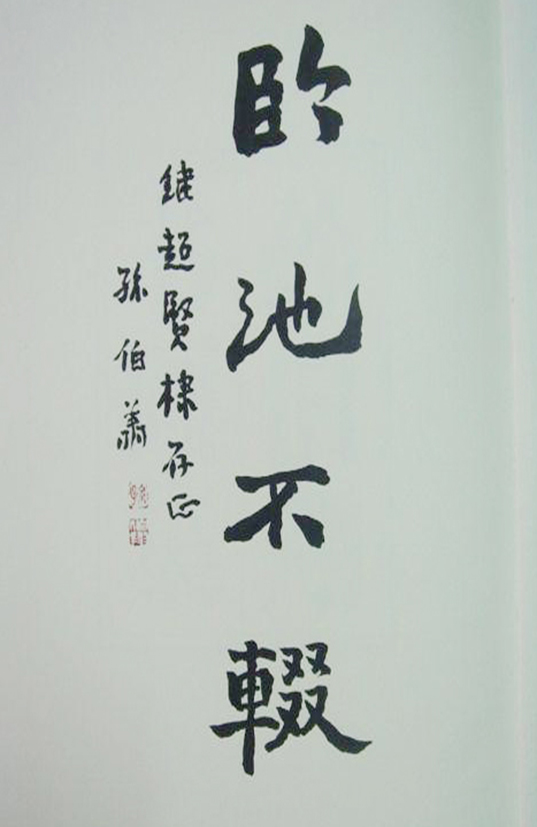 臨池不輟
鍵超賢棣存正
孫伯翔